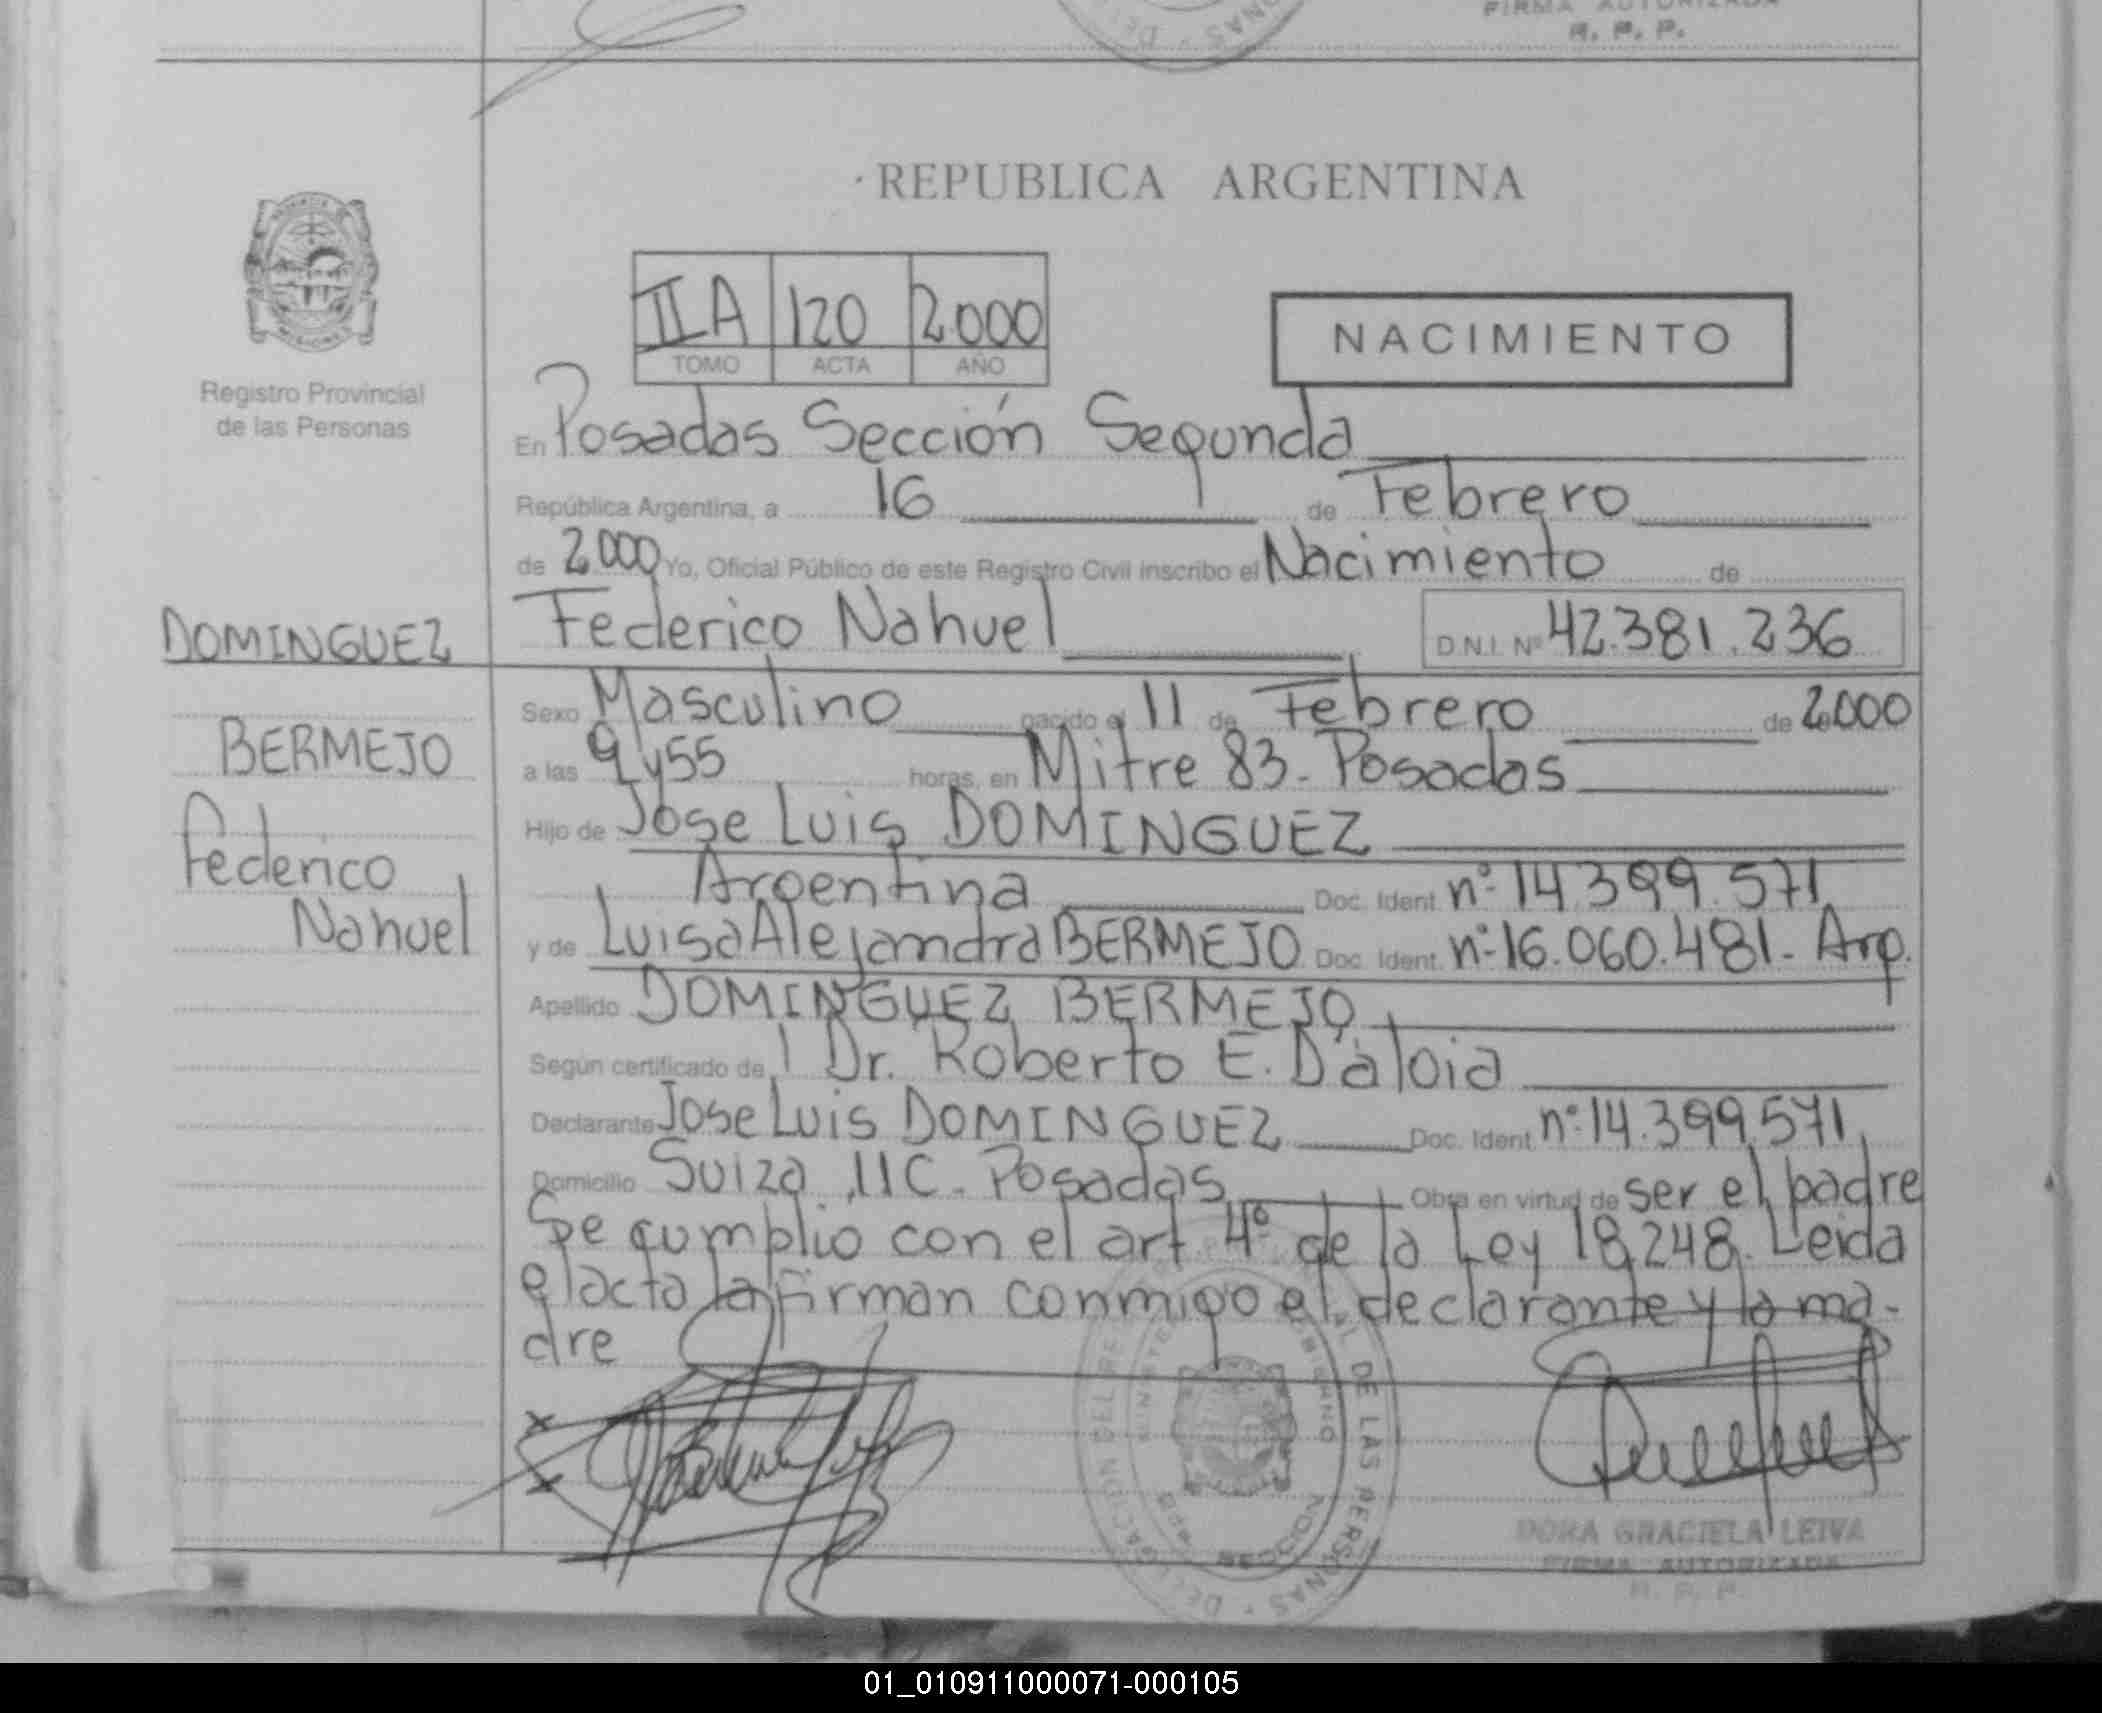 FIRMA AUTORIZADA
R. P. P.
REPUBLICA ARGENTINA
IIA 120 2.000
TOMO ACTA AÑO
NACIMIENTO
Registro Provincial
de las Personas
En Posadas Sección Segunda
República Argentina, a 16 de Febrero
de 2.000 Yo, Oficial Público de este Registro Civil inscribo el Nacimiento de
Federico Nahuel D.N.I. Nº 42.381.236
DOMINGUEZ
BERMEJO
Federico
Nahuel
Sexo Masculino nacido el 11 de Febrero de 2.000
a las 9 y 55 horas, en Mitre 83. Posadas
Hijo de Jose Luis DOMINGUEZ
Argentina Doc. Ident. nº 14.399.571
y de Luisa Alejandra BERMEJO Doc. Ident. nº 16.060.481. Arg.
Apellido DOMINGUEZ BERMEJO
Según certificado del Dr. Roberto E. D'aloia
Declarante Jose Luis DOMINGUEZ Doc. Ident. nº 14.399.571
Domicilio Suiza 11C. Posadas Obra en virtud de ser el padre
Se cumplio con el art 4º de la Ley 18.248. Leida
el acta la firman conmigo el declarante y la ma-
dre
DELEGACION DEL REGISTRO PROVINCIAL DE LAS PERSONAS
DORA GRACIELA LEIVA
FIRMA AUTORIZADA
R. P. P.
01_010911000071-000105